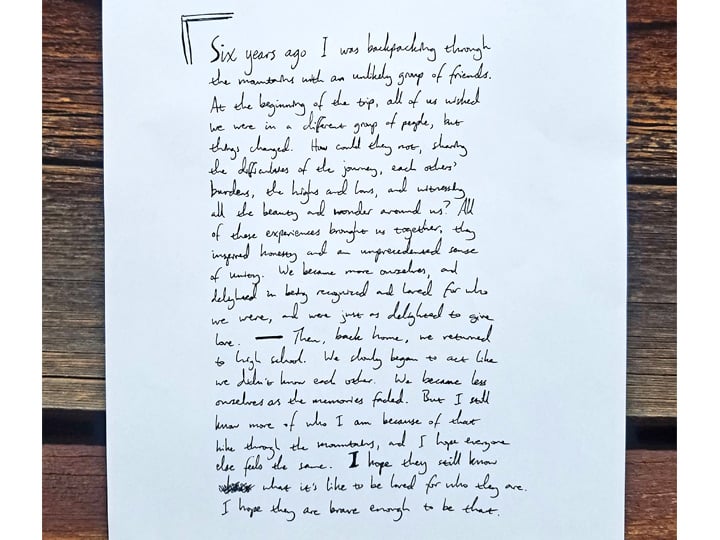 Six years ago I was backpacking through
the mountains with an unlikely group of friends.
At the beginning of the trip, all of us wished
we were in a different group of people, but
things changed. How could they not, sharing
the difficulties of the journey, each others'
burdens, the highs and lows, and witnessing
all the beauty and wonder around us? All
of these experiences brought us together, they
inspired honesty and an unprecedented sense
of unity. We became more ourselves, and
delighted in being recognized and loved for who
we were, and were just as delighted to give
love. — Then, back home, we returned
to high school. We slowly began to act like
we didn't know each other. We became less
ourselves as the memories faded. But I still
know more of who I am because of that
hike through the mountains, and I hope everyone
else feels the same. I hope they still know
what it's like to be loved for who they are.
I hope they are brave enough to be that.